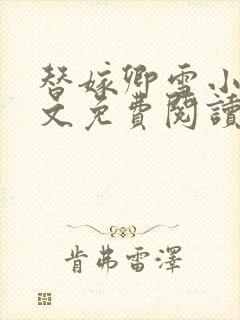 替嫁卿雪小
文免費閱讀
肯弗雷澤